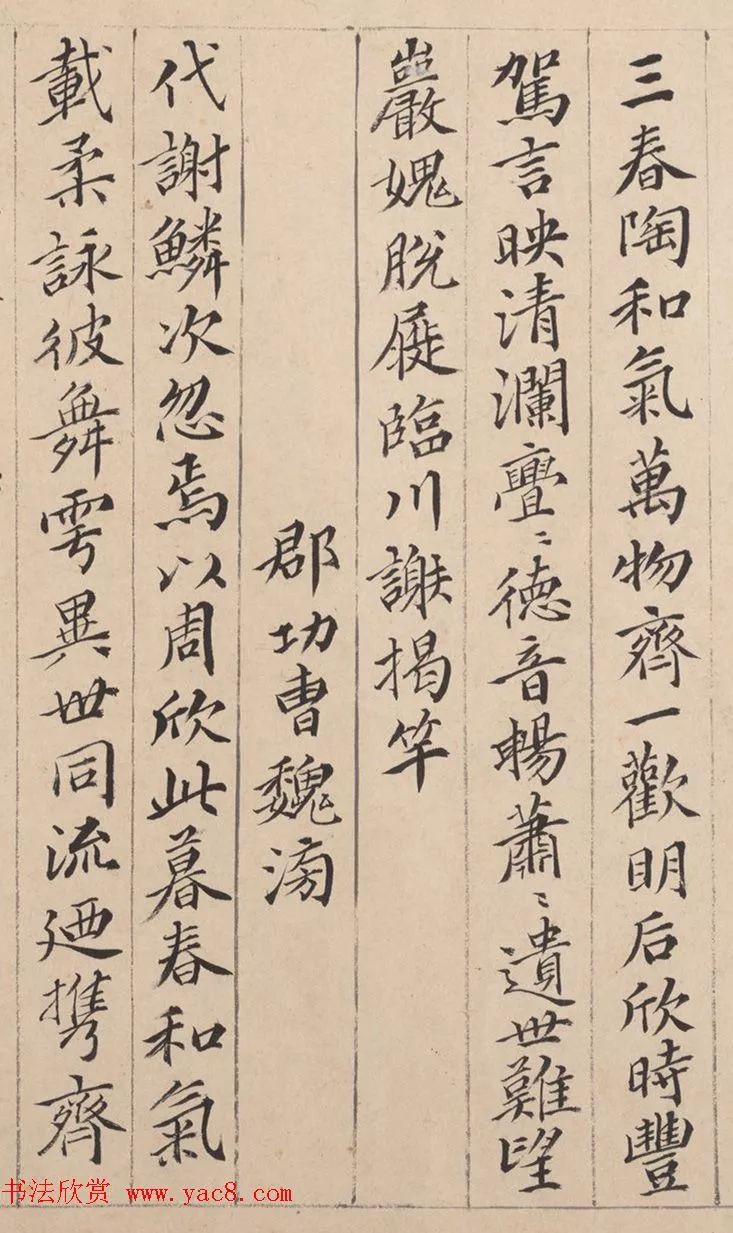 三春陶和氣萬物齊一歡明后欣時豐
駕言映清瀾亹〻德音暢蕭〻遺世難望
巖愧脫屣臨川謝揭竿
郡功曹魏滂
代謝鱗次忽焉以周欣此暮春和氣
載柔詠彼舞雩異世同流廼攜齊
书法欣赏 www.yac8.com